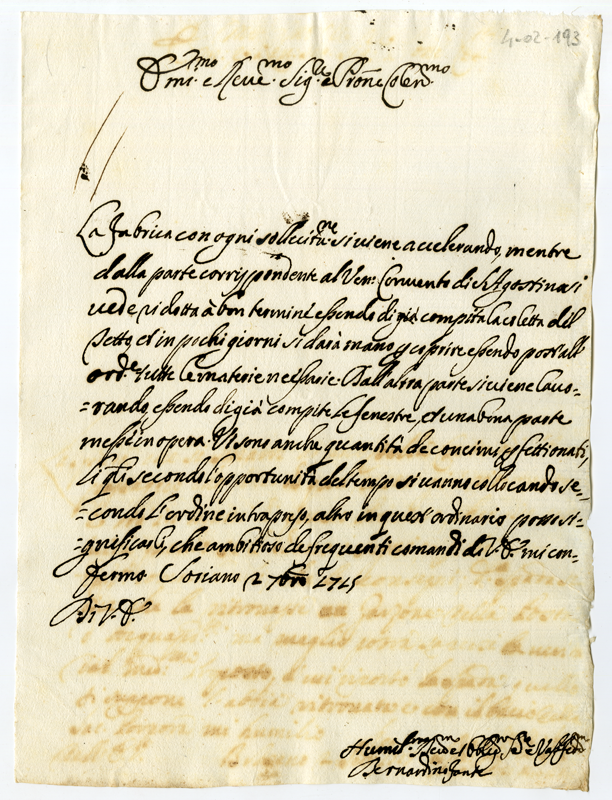 4-02-193
Emi.mo e Reve.mo Sig.re e Prõne Colen.mo
La Fabrica con ogni sollicitu.ne si viene accelerando, mentre
dalla parte corrispondente al Ven: Convento di S. Agostino si
vede ridotta à bon termine essendo di già compita la
Tetto, et in pochi giorni si darà mano p coprire essendo post'all'
ord.e tutte le materie necessarie. Dall'altra parte si viene lavo=
=rando, essendo di già compite le fenestre, et una bona parte
messe in opera. Vi sono anche quantità de concimi pfettionati,
li q.li secondo l'opportunità del tempo si vanno collocando se=
=condo l'ordine intrapreso, altro in quest'ordinario posso si=
=gnificarli, che ambitioso de frequenti comandi di V. E. mi con=
fermo Soriano 2 7bre 1715
Di V. E.
Humil.mo Dev.mo et Oblig.mo Ser.e e Vass.
Bernardino Fante